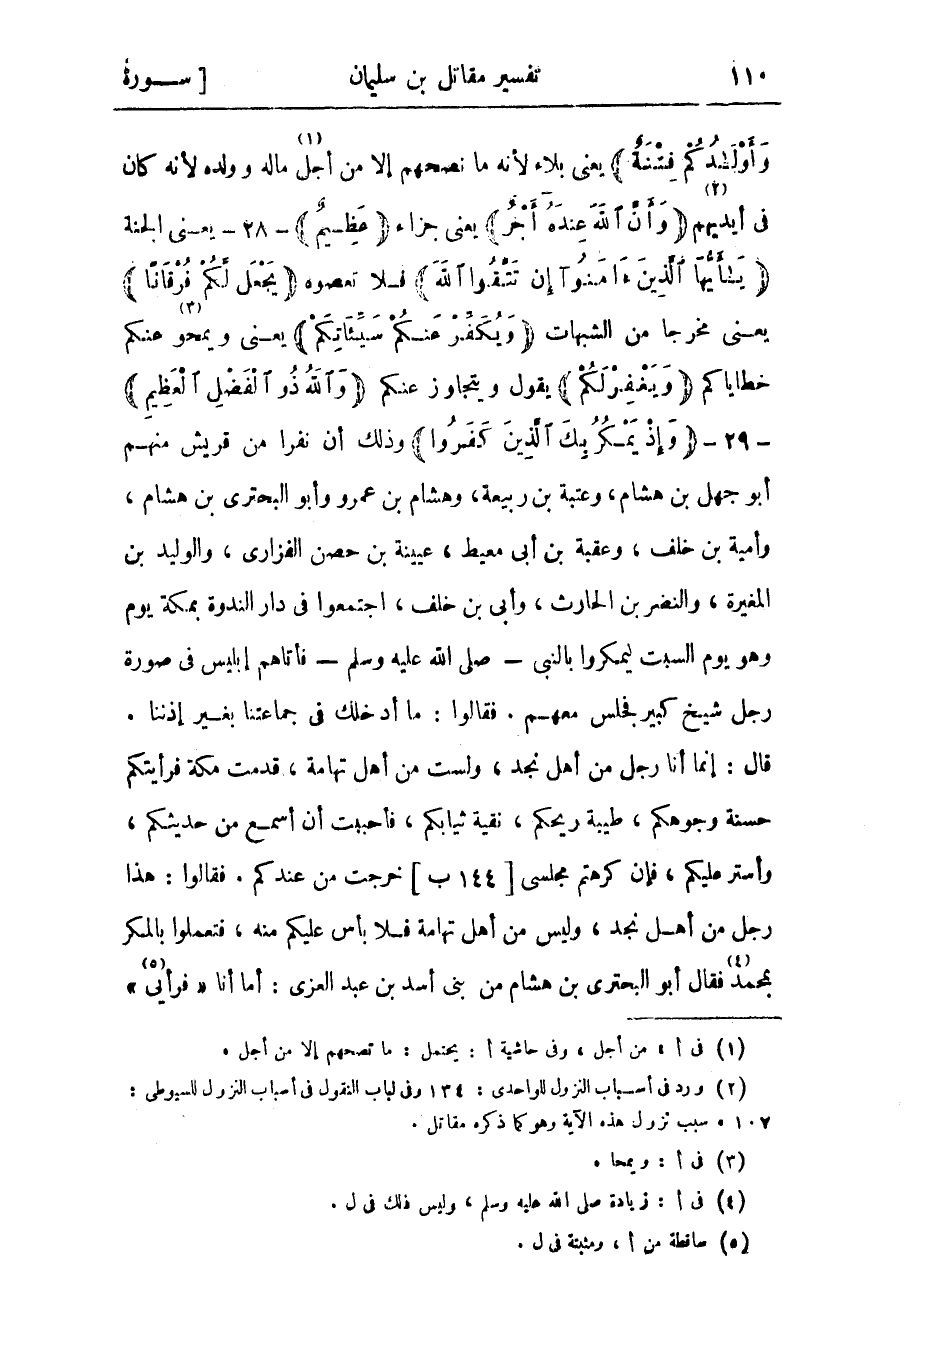 ١١٠ تفسير مقاتل بن سليمان [ ســورة
وَأَوْلَـٰدُكُمْ فِتْنَةٌ ﴾ يعنى بلاء لأنه ما نصحهم إلا من أجل(١) ماله وولده لأنه كان
فى أيديهم(٢) ﴿ وَأَنَّ ٱللَّهَ عِندَهُۥٓ أَجْرٌ ﴾ يعنى جزاء ﴿ عَظِـيمٌ ﴾ - ٢٨ - يعـنى الجنة
﴿ يَـٰٓأَيُّهَا ٱلَّذِينَ ءَامَنُوٓا۟ إِن تَتَّقُوا۟ ٱللَّهَ ﴾ فـلا تعصوه ﴿ يَجْعَل لَّكُمْ فُرْقَانًا ﴾
يعـنى مخرجا من الشبهات ﴿ وَيُكَفِّرْ عَنـكُمْ سَيِّئَاتِكُمْ ﴾ يعـنى ويمحو(٣) عنكم
خطاياكم ﴿ وَيَغْفِرْ لَكُمْ ﴾ يقول ويتجاوز عنكم ﴿ وَٱللَّهُ ذُو ٱلْفَضْلِ ٱلْعَظِيمِ ﴾
- ٢٩ - ﴿ وَإِذْ يَمْـكُرُ بِكَ ٱلَّذِينَ كَفَرُوا۟ ﴾ وذلك أن نفرا من قريش منهـم
أبو جهل بن هشام، وعتبة بن ربيعة، وهشام بن عمرو وأبو البحترى بن هشام ،
وأمية بن خلف ، وعقبة بن أبى معيط ، عيينة بن حصن الفزارى ، والوليد بن
المغيرة ، والنضر بن الحارث ، وأبى بن خلف ، اجتمعوا فى دار الندوة بمكة يوم
وهو يوم السبت ليمكروا بالنبى - صلى الله عليه وسلم - فأتاهم إبليس فى صورة
رجل شيـخ كبير فجلس معهـم . فقالوا : ما أدخلك فى جماعتنا بغـير إذننا .
قال : إنما أنا رجل من أهل نجد ، ولست من أهل تهامة ، قدمت مكة فرأيتكم
حسنة وجوهكم ، طيبة ريحكم ، نقية ثيابكم ، فأحببت أن أسمـع من حديثكم ،
وأستر عليكم ، فإن كرهتم مجلسى [ ١٤٤ ب ] خرجت من عندكم . فقالوا : هذا
رجل من أهـل نجد ، وليس من أهل تهامة فـلا بأس عليكم منه ، فتعملوا بالمكر
بمحمد(٤) فقال أبو البحترى بن هشام من بنى أسد بن عبد العزى : أما أنا « فرأيى(٥) »
(١) فى أ ، من أجل ، وفى حاشية أ : يحتمل : ما تصحهم إلا من أجل .
(٢) ورد فى أسـباب النزول للواحدى : ١٣٤ وفى لباب النقول فى أسباب النزول للسيوطى :
١٠٧ ، سبب نزول هذه الآية وهو كما ذكره مقاتل .
(٣) فى أ : ويمحا .
(٤) فى أ : زيادة صلى الله عليه وسلم ، وليس ذلك فى ل .
(٥) ساقطة من أ ، ومثبتة فى ل .